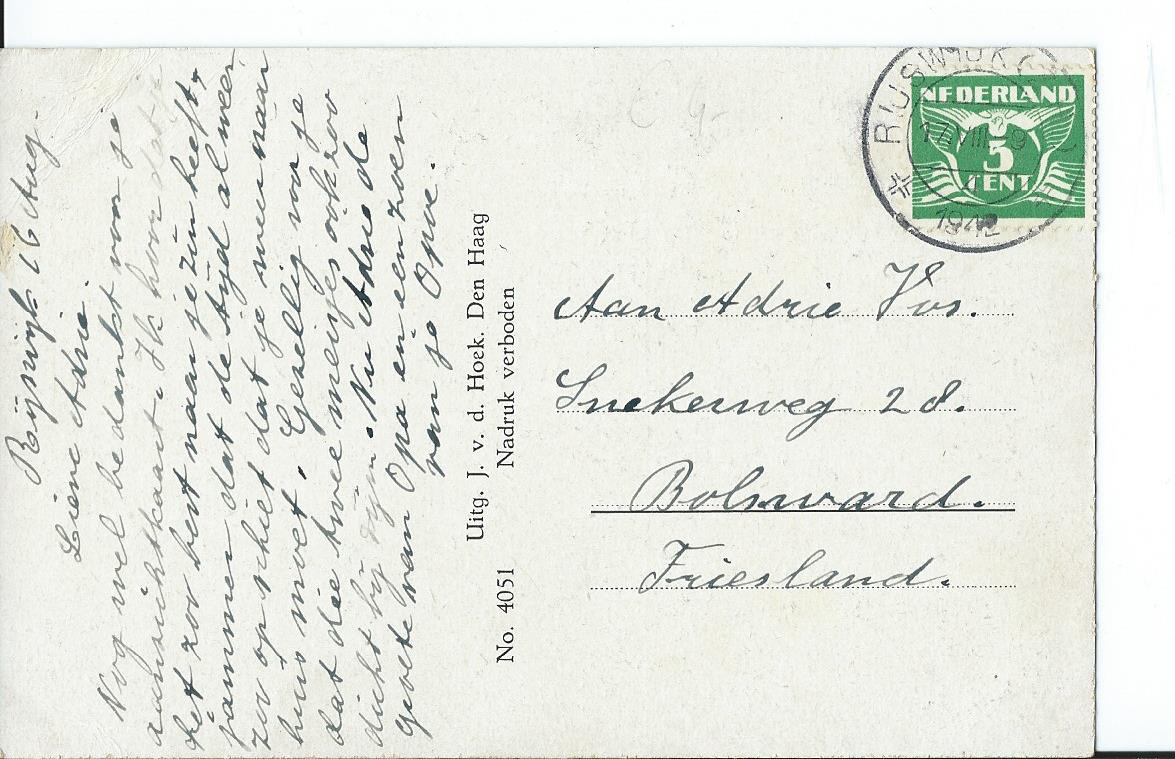 Rijswijk 16 Aug.
Lieve Adrie.
Nog wel bedankt voor je
aanzichtkaart. Ik hoor dat je
het zoo best naar je zin heeft,
jammer dat de tijd al weer
zoo op schiet dat je weer naar
huis moet. Gezellig voor je
dat die twee meisjes ook zoo
dicht bij zijn. Nu Adrie de
groete van Opa en een zoen
van je Opoe.
No. 4051 Uitg. J. v. d. Hoek. Den Haag
Nadruk verboden
C 9-
RIJSWIJK (
17 VIII 9
4
1942
NEDERLAND
3
CENT
Aan Adrie Vos.
Snekerweg 28.
Bolsward.
Friesland.